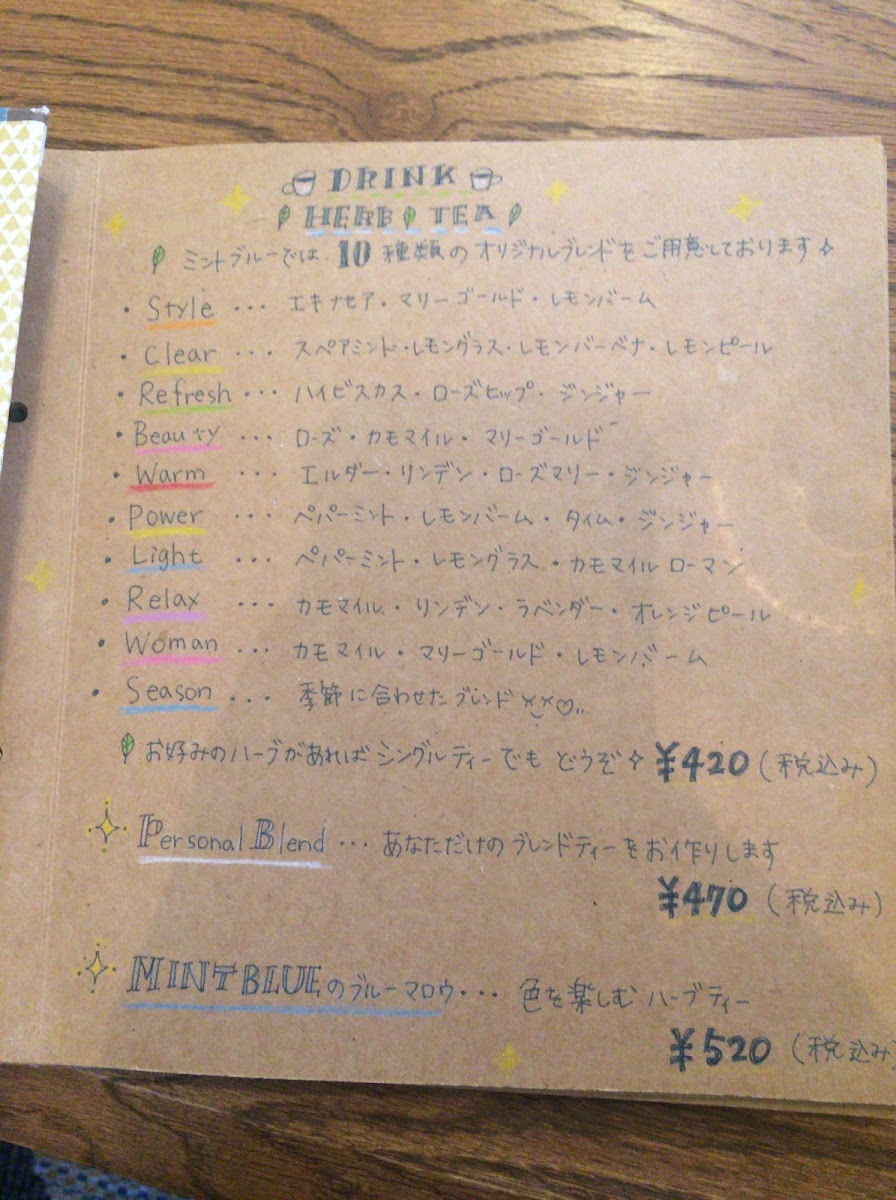 DRINK
HERB TEA
ミントブルーでは 10 種類のオリジナルブレンドをご用意しております
・Style ・・・ エキナセア・マリーゴールド・レモンバーム
・Clear ・・・ スペアミント・レモングラス・レモンバーベナ・レモンピール
・Refresh ・・・ ハイビスカス・ローズヒップ・ジンジャー
・Beauty ・・・ ローズ・カモマイル・マリーゴールド
・Warm ・・・ エルダー・リンデン・ローズマリー・ジンジャー
・Power ・・・ ペパーミント・レモンバーム・タイム・ジンジャー
・Light ・・・ ペパーミント・レモングラス・カモマイルローマン
・Relax ・・・ カモマイル・リンデン・ラベンダー・オレンジピール
・Woman ・・・ カモマイル・マリーゴールド・レモンバーム
・Season ・・・ 季節に合わせたブレンド
お好みのハーブがあればシングルティーでもどうぞ ¥420 (税込み)
Personal Blend ・・・ あなただけのブレンドティーをお作りします
¥470 (税込み)
MINT BLUEのブルーマロウ・・・ 色を楽しむハーブティー
¥520 (税込み)